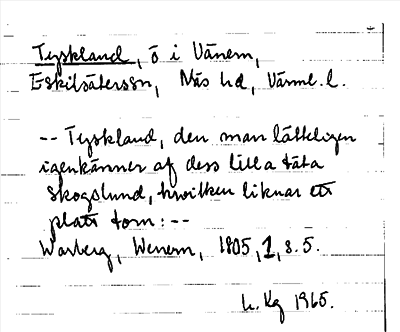 Tyskland, ö i Vänern,
Eskilsäterssn, Näs hd, Värml. l.
-- Tyskland, den man lätteligen
igenkänner af dess lilla täta
skogslund, hwilken liknar ett
platt torn: --
Warberg, Wenern, 1805, 1, s. 5.
1965.